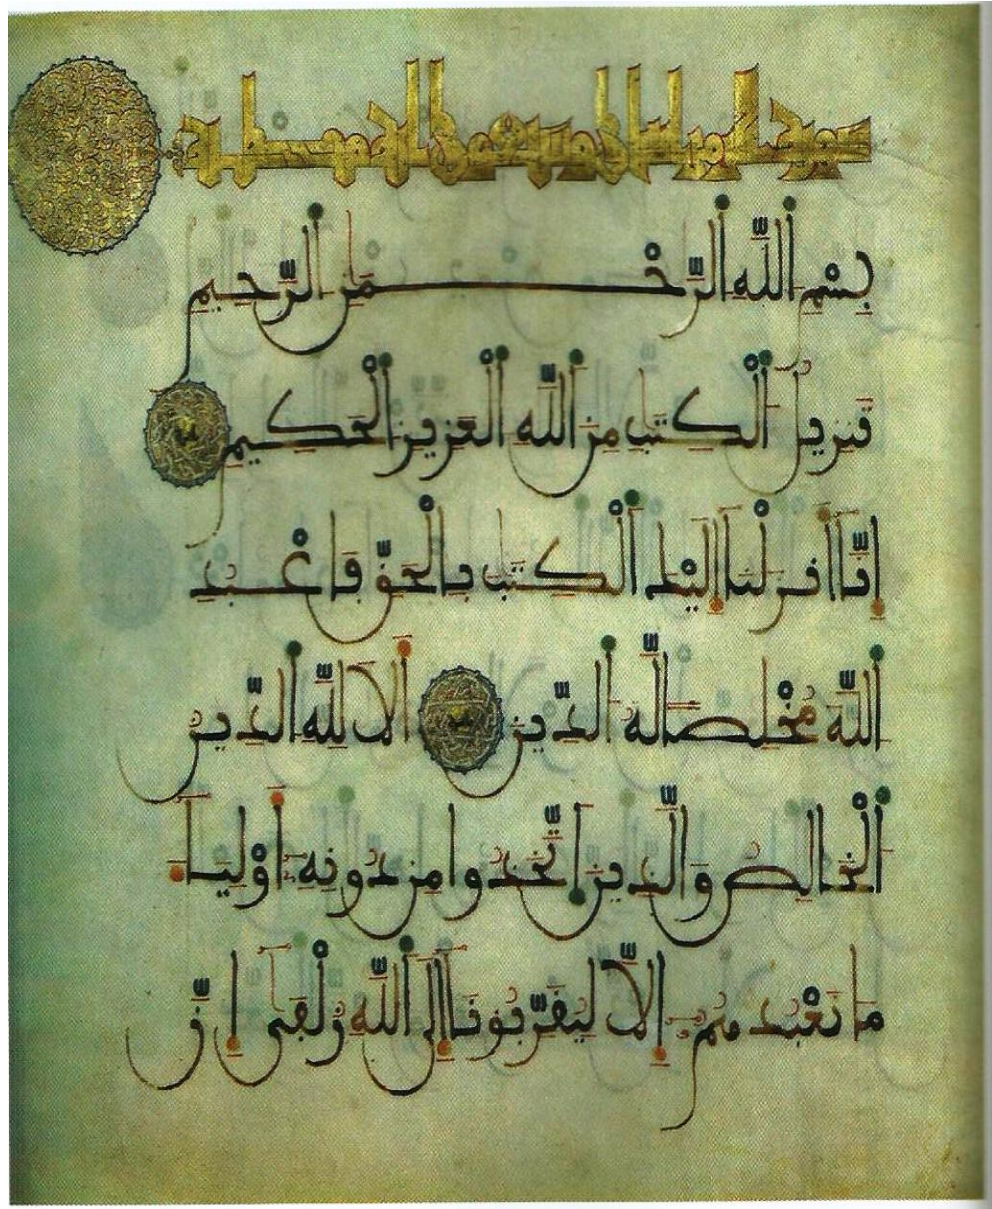 سورة الزمر وسبعون
بِسْمِ اللَّهِ الرَّحْمَنِ الرَّحِيمِ
تَنزِيلُ الْكِتَبِ مِنَ اللَّهِ الْعَزِيزِ الْحَكِيمِ
إِنَّا أَنزَلْنَا إِلَيْكَ الْكِتَبَ بِالْحَقِّ فَاعْبُدِ
اللَّهَ مُخْلِصًا لَّهُ الدِّينَ أَلَا لِلَّهِ الدِّينُ
الْخَالِصُ وَالَّذِينَ اتَّخَذُوا مِن دُونِهِ أَوْلِيَاءَ
مَا نَعْبُدُهُمْ إِلَّا لِيُقَرِّبُونَا إِلَى اللَّهِ زُلْفَى إِنَّ